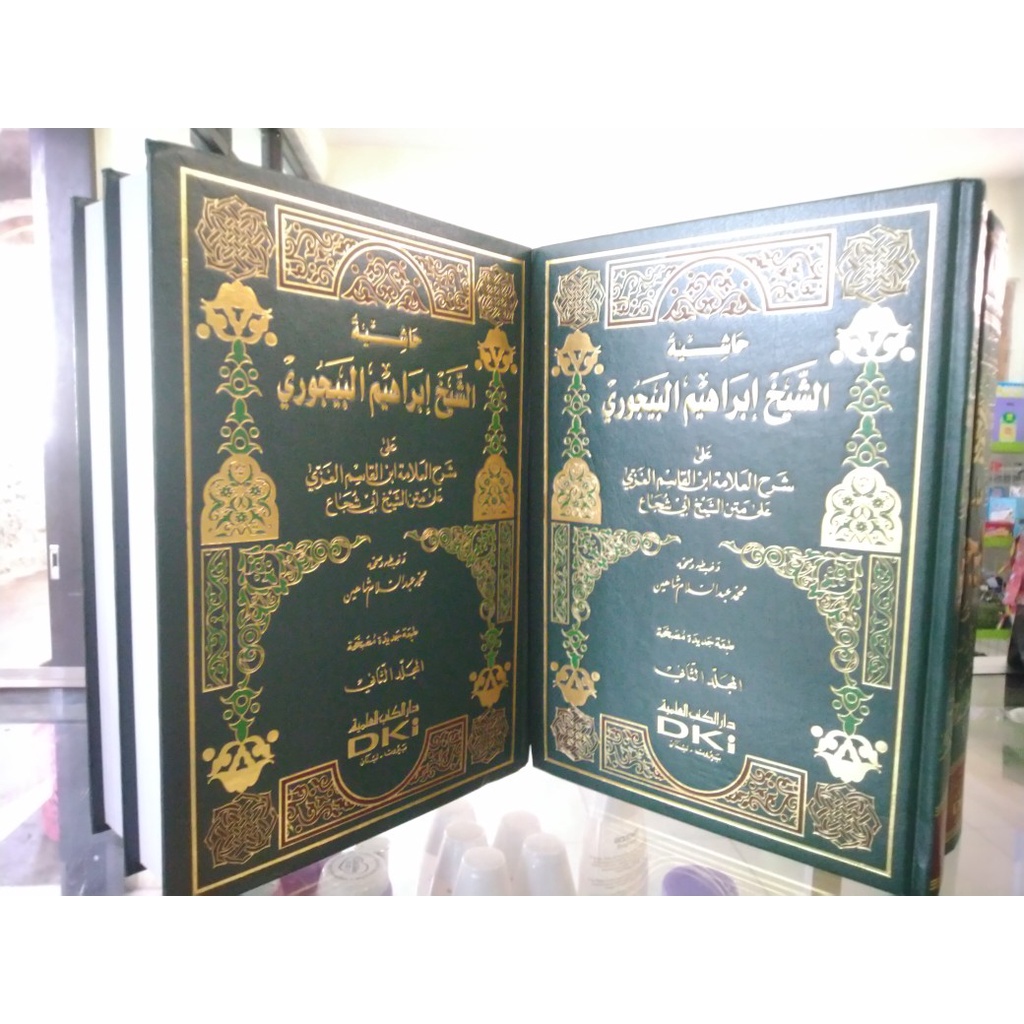 حَاشِيَةُ
الشَّيْخ إبْرَاهِيْم البَيْجُوريْ
عَلىٰ
شَرْح العَلامَة ابْن القَاسِم الغَزِّيّ
عَلىٰ مَتن الشَّيْخ أبي شُجَاع
ضبطه وصححه
محمد عبد السلام شاهين
طبعَة جَديدَة مُصَحَّحَة
المجَلّد الثّاني
دار الكتب العلمية
DKi
بيروت - لبنان
حَاشِيَةُ
الشَّيْخ إبْرَاهِيْم البَيْجُوريْ
عَلىٰ
شَرْح العَلامَة ابْن القَاسِم الغَزِّيّ
عَلىٰ مَتن الشَّيْخ أبي شُجَاع
ضبطه وصححه
محمد عبد السلام شاهين
طبعَة جَديدَة مُصَحَّحَة
المجَلّد الثّاني
دار الكتب العلمية
DKi
بيروت - لبنان